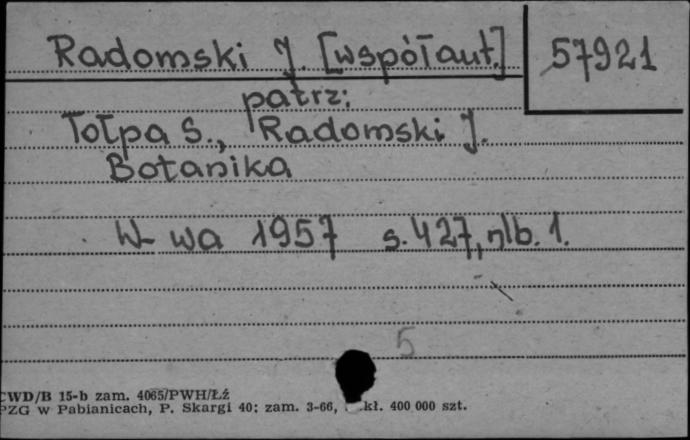 Radomski J. [współaut.] 57921
patrz:
Tołpa S., Radomski J.
Botanika
W-wa 1957 s. 427, nlb. 1.
5
CWD/B 15-b zam. 4065/PWH/Łź
PZG w Pabianicach, P. Skargi 40; zam. 3-66, kł. 400 000 szt.